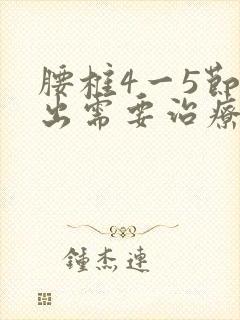 腰椎4一5節
出需要治療
鍾杰連